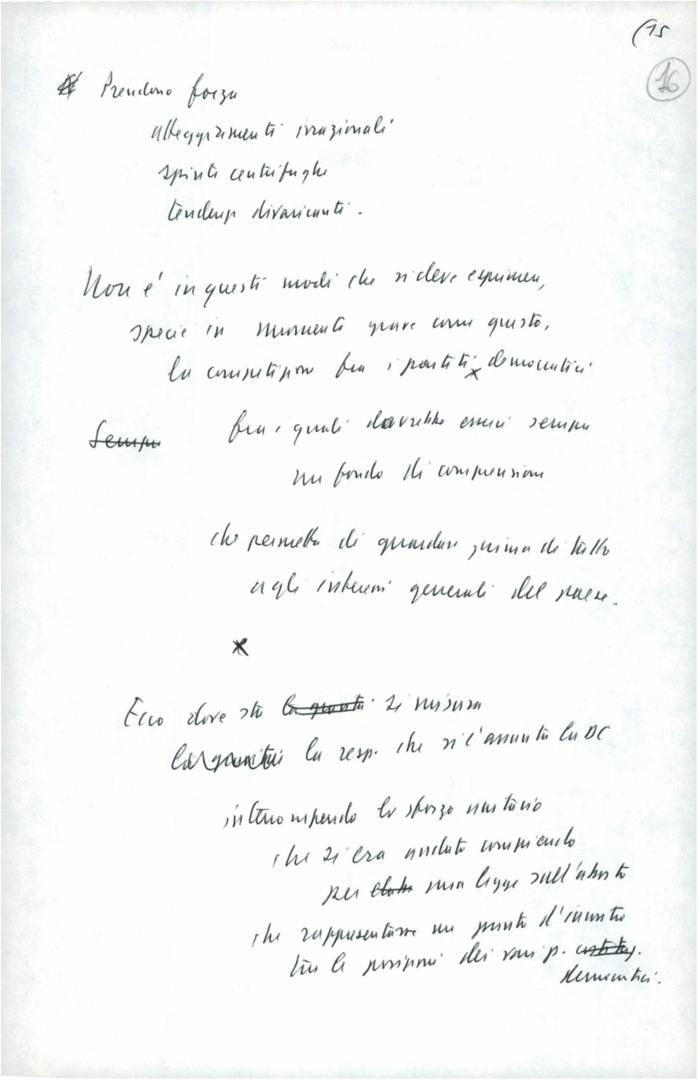 (15
16
Prendono forza
atteggiamenti irrazionali
spinte centrifughe
tendenze divaricanti.
Non è in questi modi che si deve esprimere,
specie in momenti grave come questo,
la competizione fra i partiti democratici
Sempre fra i quali dovrebbe esserci sempre
un fondo di comprensione
che permetta di guardare prima di tutto
agli interessi generali del paese.
*
Ecco dove sta la gravità si misura
la resp. che si è assunta la DC
interrompendo lo sforzo unitario
che si era andato compiendo
per una legge sull'aborto
che rappresentasse un punto d'incontro
tra le posizioni dei vari p.
democratici.